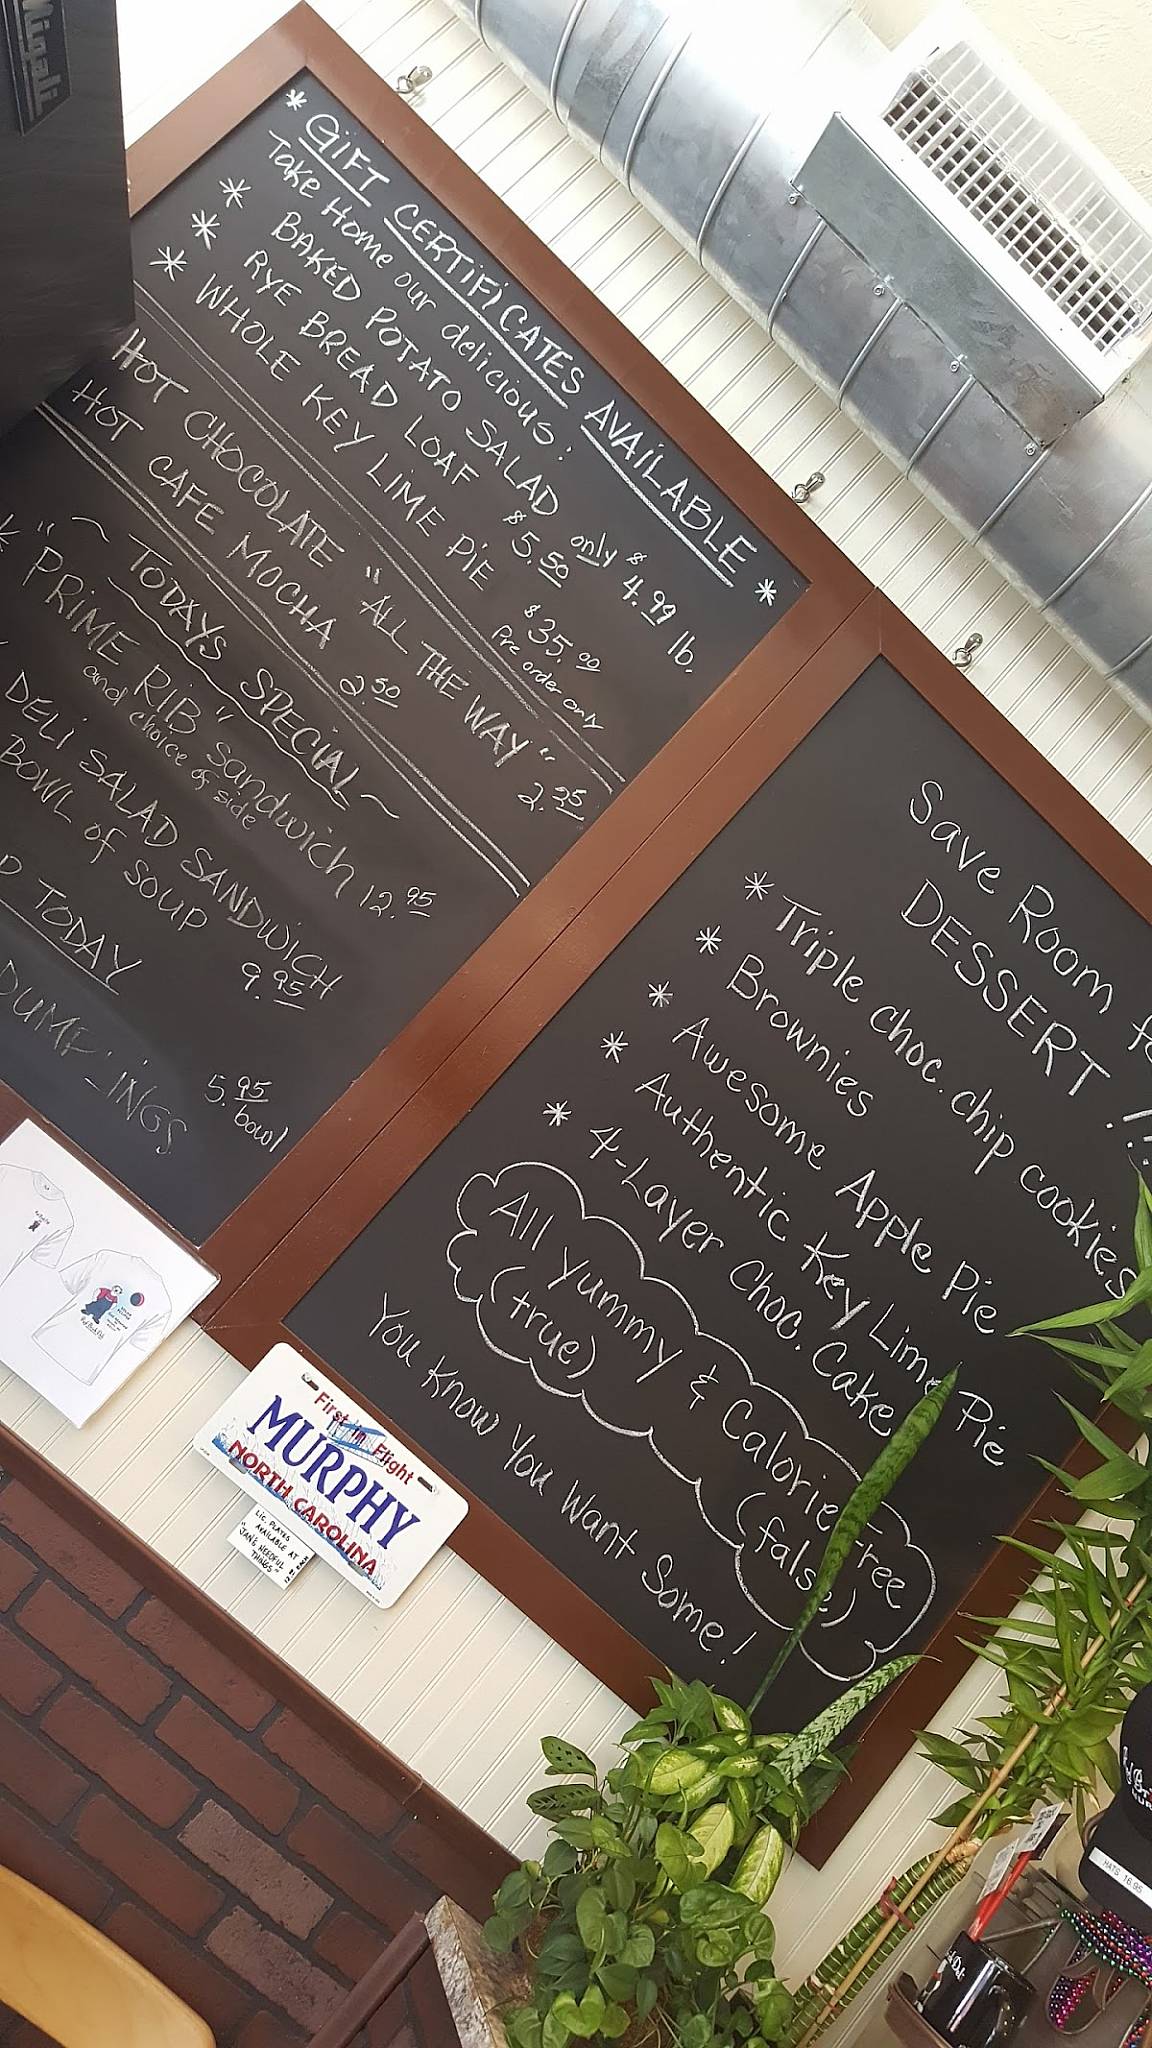 * GIFT CERTIFICATES AVAILABLE *
Take Home our delicious:
* BAKED POTATO SALAD only $4.99 lb.
* RYE BREAD LOAF $5.50
* WHOLE KEY LIME PIE $35.00
Pre order only
HOT CHOCOLATE "ALL THE WAY" 2.95
HOT CAFE MOCHA 2.50
~ TODAYS SPECIAL ~
* "PRIME RIB" sandwich 12.95
and choice of side
DELI SALAD SANDWICH
BOWL of SOUP 9.95
TODAY
DUMPLINGS 5.95 bowl
Save Room
DESSERT!!
* Triple choc. chip cookies
* Brownies
* Awesome Apple Pie
* Authentic Key Lime Pie
* 4-Layer Choc. Cake
All yummy & Calorie Free
(true) (false)
You Know You Want Some!
First in Flight
MURPHY
NORTH CAROLINA
LIC. PLATES
AVAILABLE AT
"JAN'S NEEDFUL
THINGS"
HATS 16.95